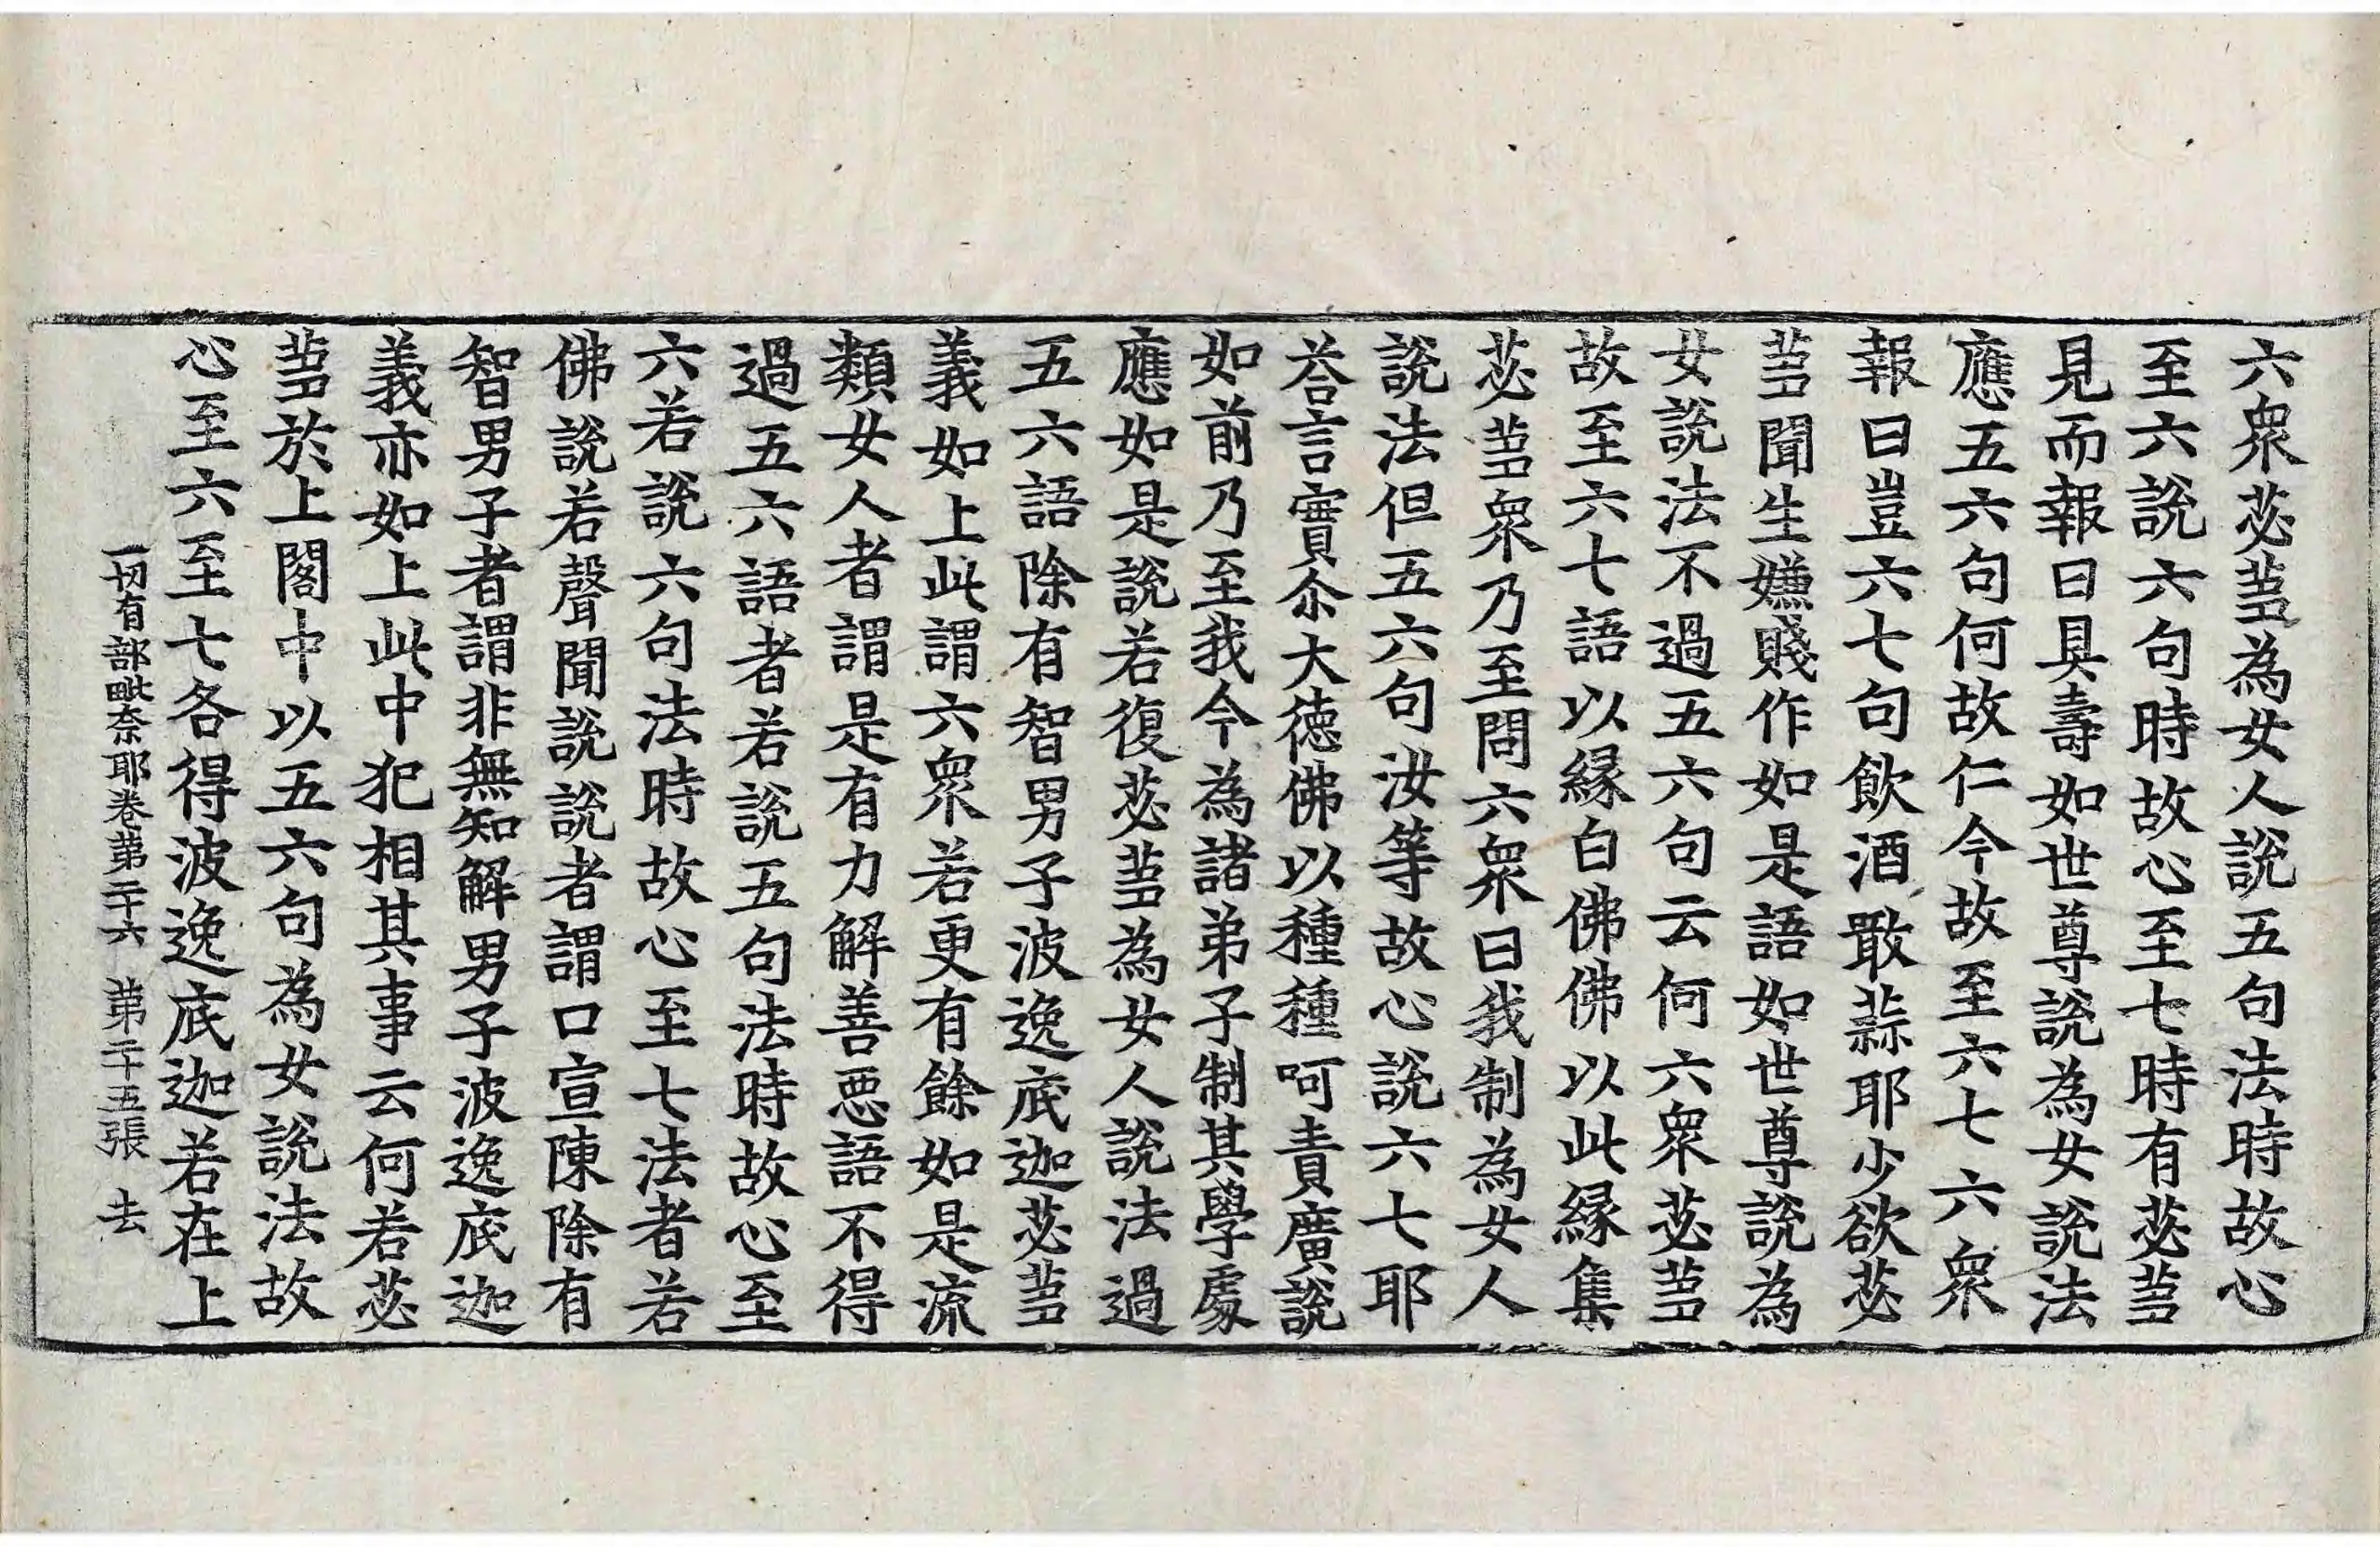 六衆苾芻為女人說五句法時故心
至六說六句時故心至七時有苾芻
見而報曰具壽如世尊說為女說法
應五六句何故仁今故至六七六衆
報曰豈六七句飲酒噉蒜耶少欲苾
芻聞生嫌賤作如是語如世尊說為
女說法不過五六句云何六衆苾芻
故至六七語以緣白佛佛以此緣集
苾芻衆乃至問六衆曰我制為女人
說法但五六句汝等故心說六七耶
荅言實尒大德佛以種種呵責廣說
如前乃至我今為諸弟子制其學處
應如是說若復苾芻為女人說法過
五六語除有智男子波逸底迦苾芻
義如上此謂六衆若更有餘如是流
類女人者謂是有力解善惡語不得
過五六語者若說五句法時故心至
六若說六句法時故心至七法者若
佛說若聲聞說說者謂口宣陳除有
智男子者謂非無知解男子波逸底迦
義亦如上此中犯相其事云何若苾
芻於上閣中以五六句為女說法故
心至六至七各得波逸底迦若在上
一切有部毗奈耶卷第二十六 第二十五張 去